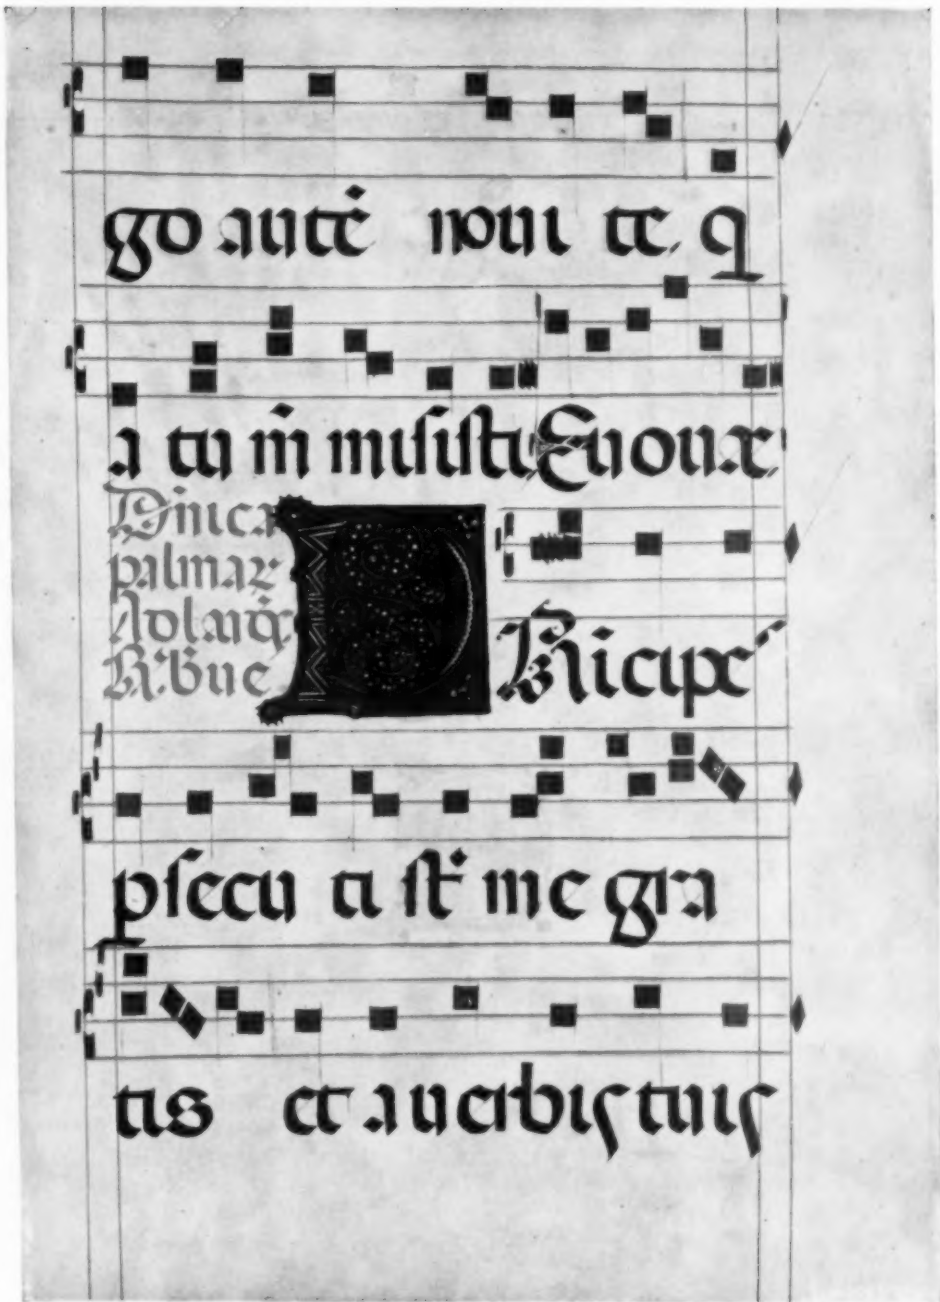 go autē noui te. q
a tu m̄ misisti Euouae
Dn̄ica
palmar
Ad laud
R. breue
PRicipe
psecu ti st me gra
tis et a uerbis tuis